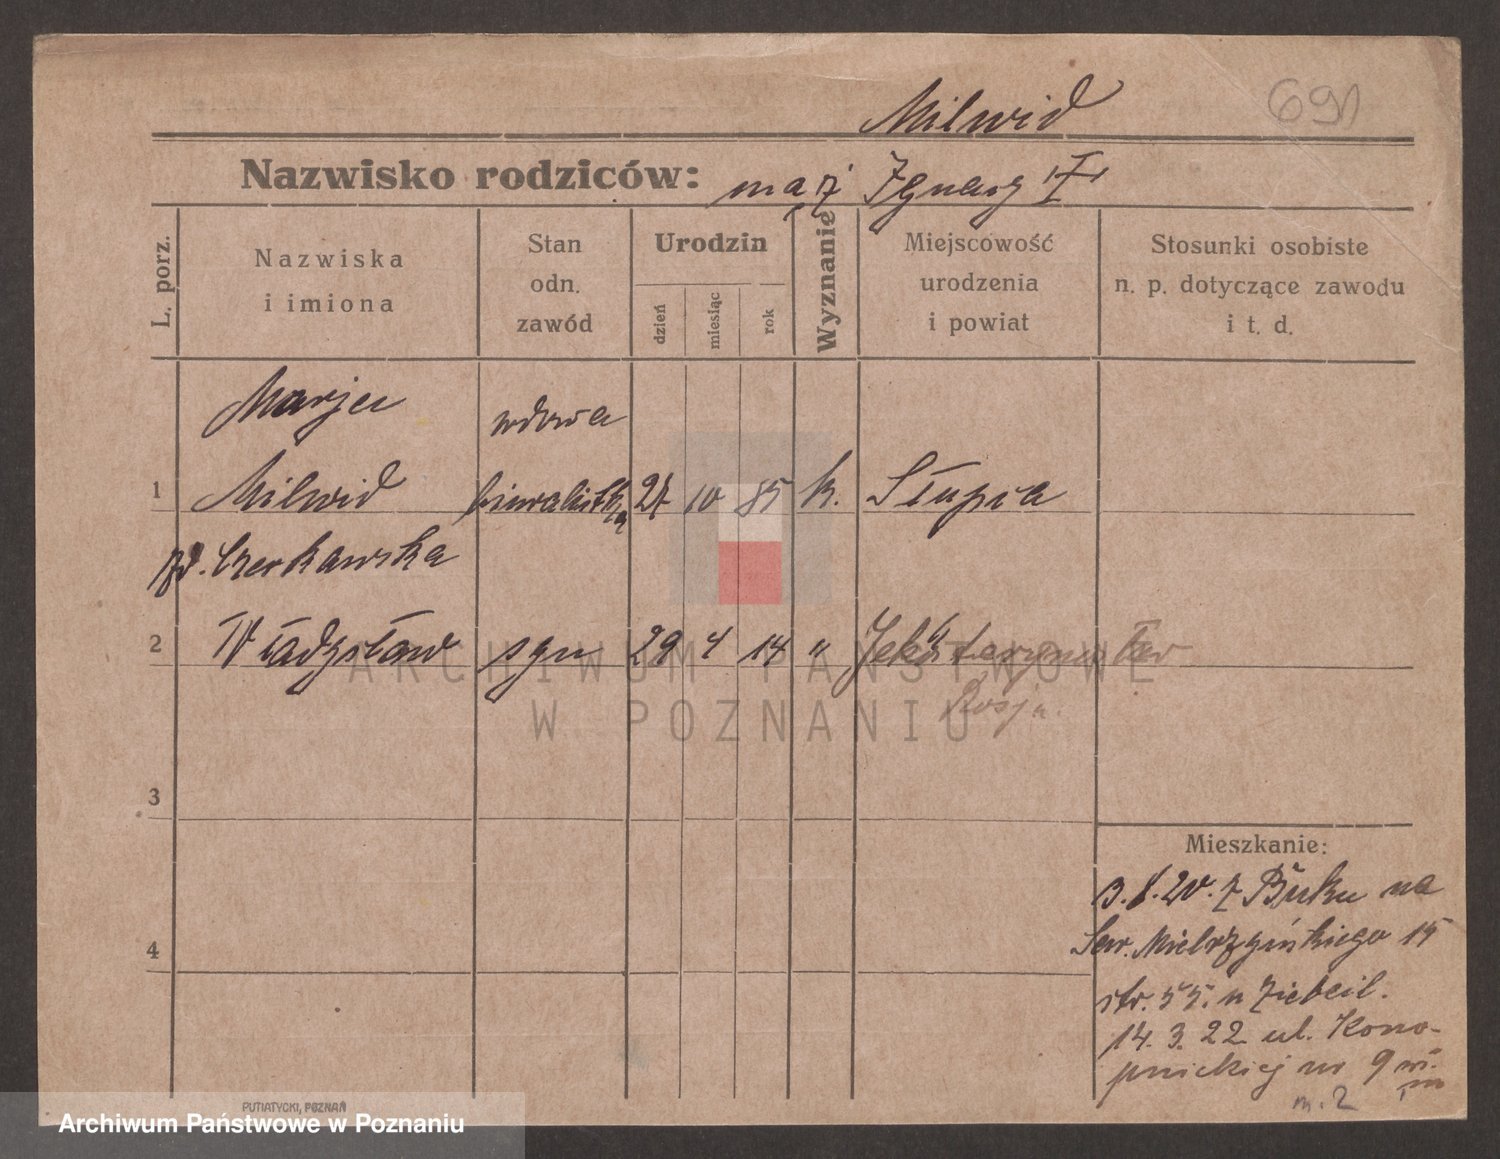 Milwid
691
Nazwisko rodziców: mąż Ignacy †
L. porz.
Nazwiska
i imiona
Stan
odn.
zawód
Urodzin
dzień
miesiąc
rok
Wyznanie
Miejscowość
urodzenia
i powiat
Stosunki osobiste
n. p. dotyczące zawodu
i t. d.
Marja
wdowa
1 Milwid biuralistka 27 10 85 k. Słupia
zd. Czerkawska
2 Władysław syn 29 4 14 "
Rosja.
3
4
ARCHIWUM PAŃSTWOWE
W POZNANIU
Mieszkanie:
3.8.20. z Buku na
Sew. Mielżyńskiego 15
str. 55. u
14. 3. 22 ul. Kono-
pnickiej nr 9
m. 2
PUTIATYCKI, POZNAŃ
Archiwum Państwowe w Poznaniu